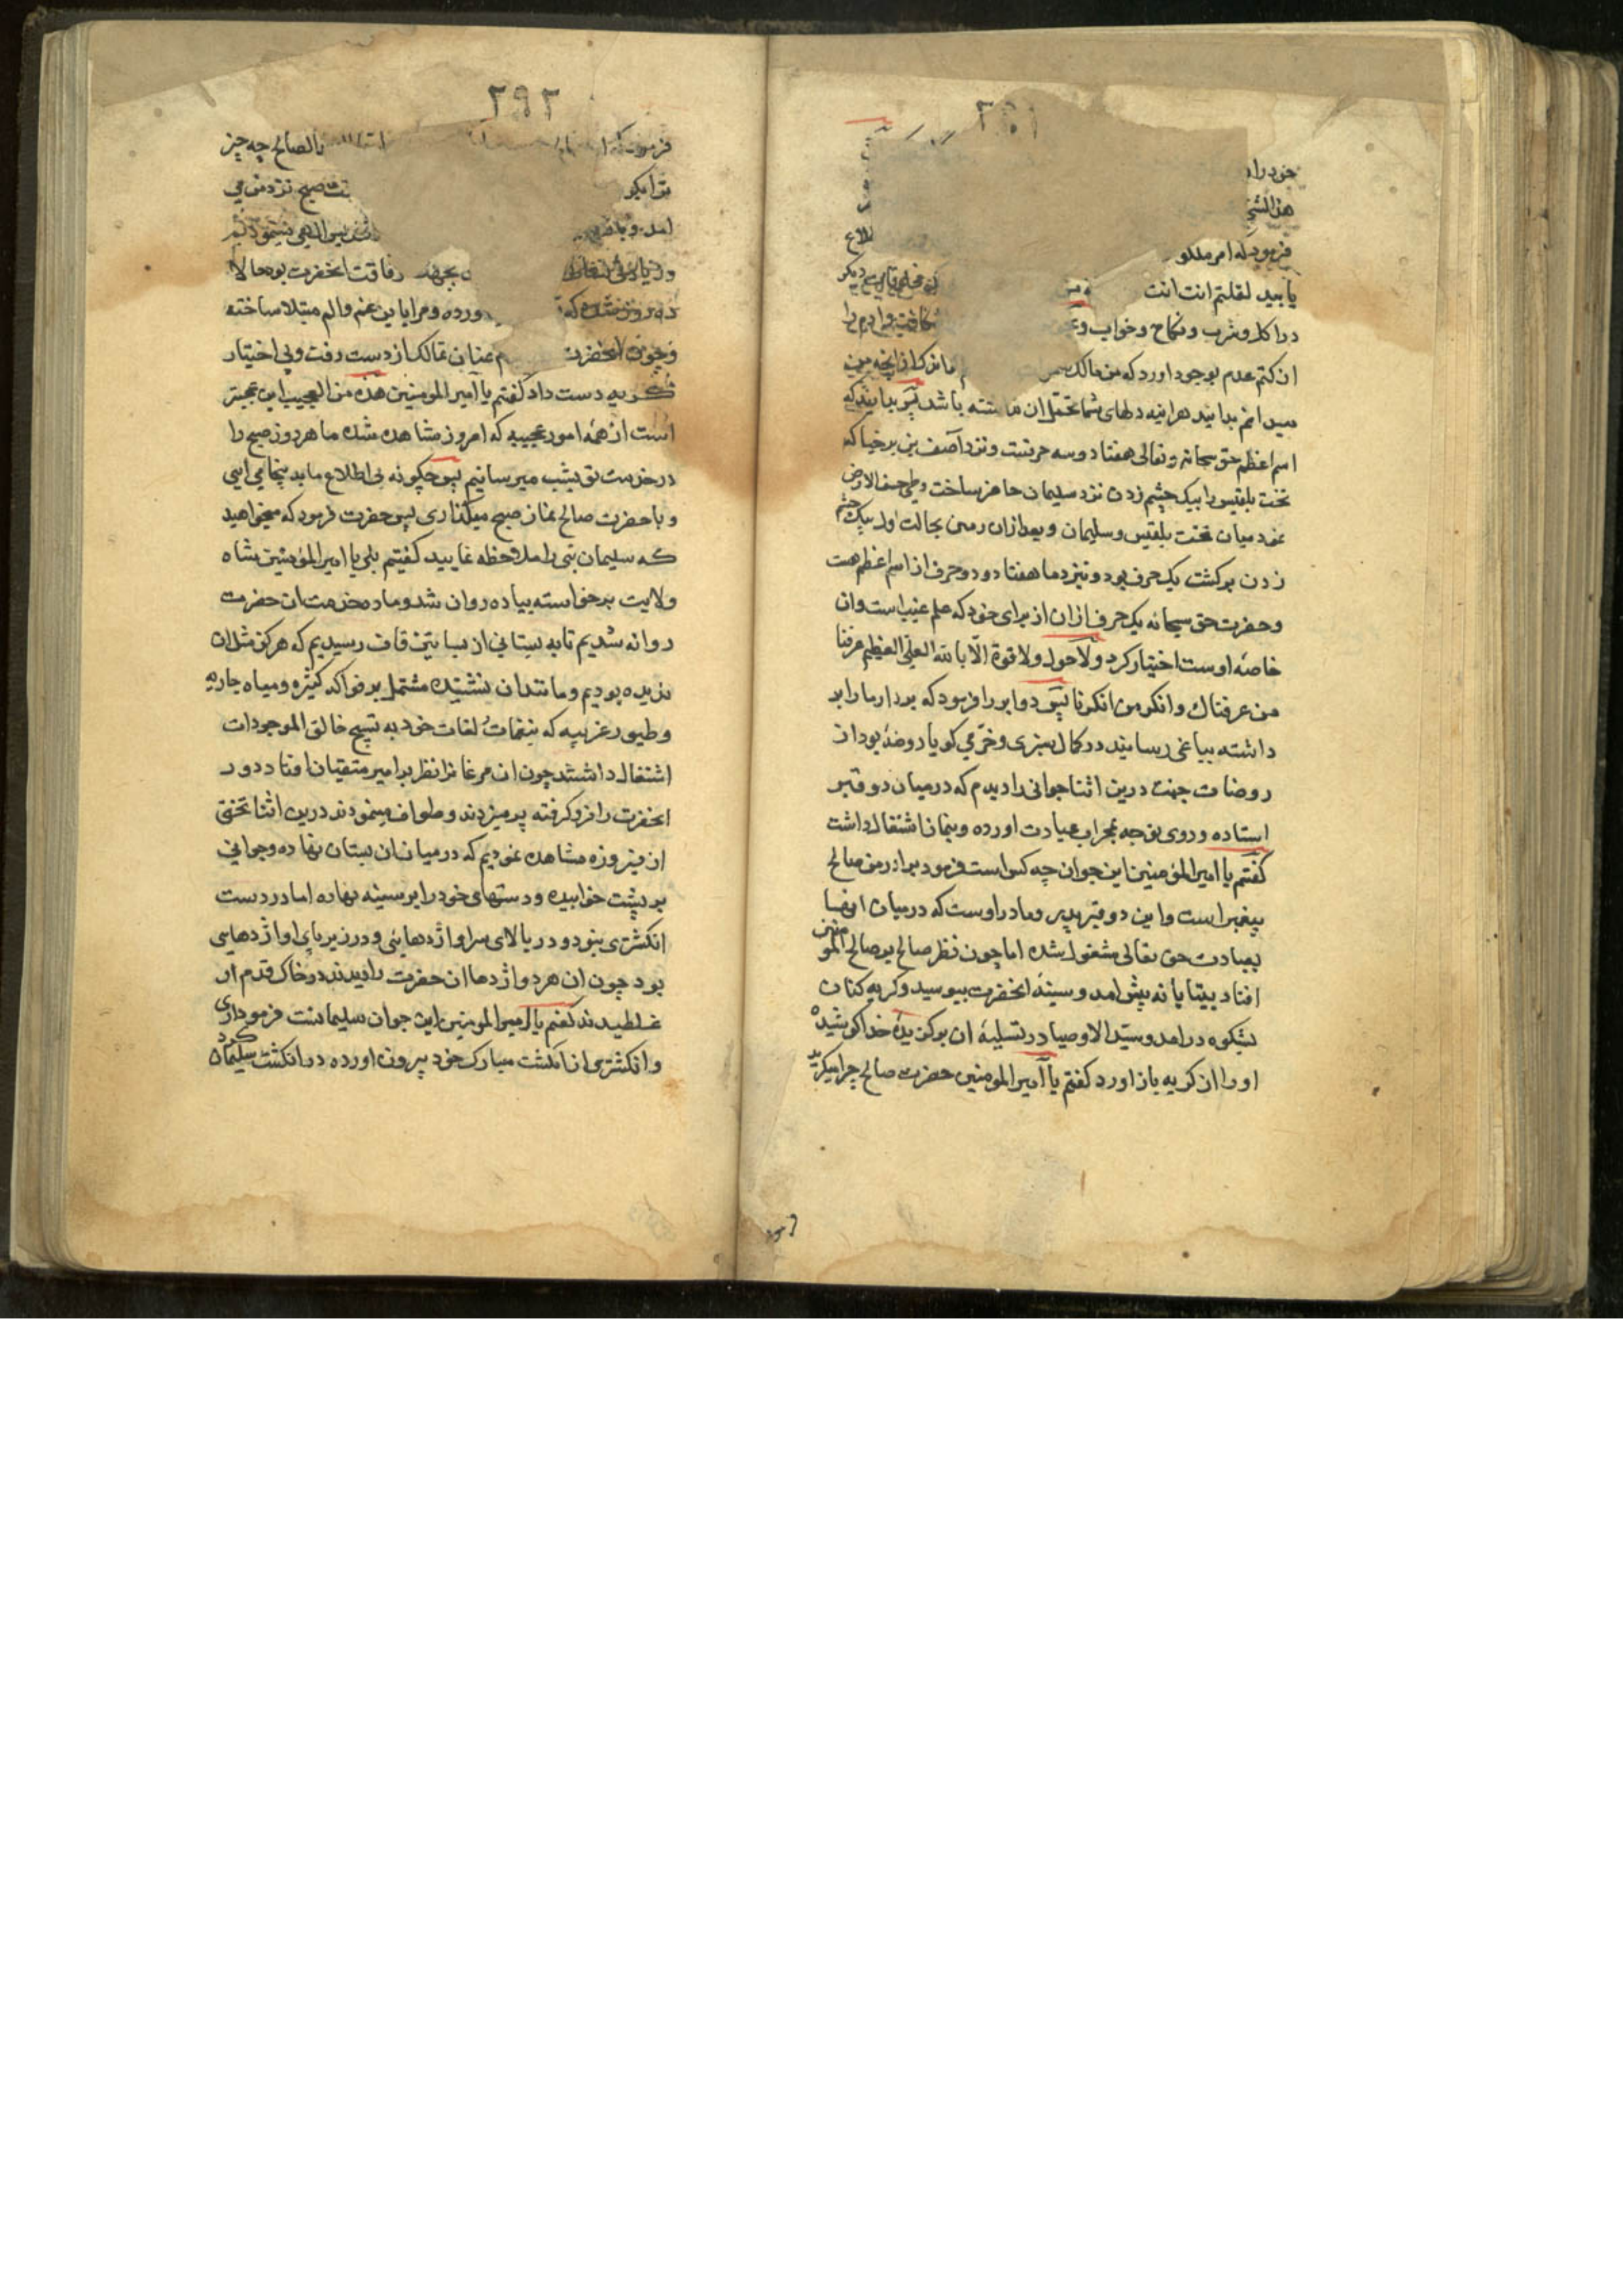 خود را
هذا الشی
فرمود که امر مللو
یابید لقلتم انت انت
در اکل و شرب و نکاح و خواب و
ان کتم عدم بوجود اورد که من مالک
میدانم بدانید هراینه دلهای شما تحمل ان نداشته باشد پس بدانید که
اسم اعظم حق سبحانه و تعالی هفتاد و سه حرفست و نزد آصف بن برخیا که
تخت بلقیس را بیک چشم زدن نزد سلیمان حاضر ساخت و طی خسف الارض
نمود میان تخت بلقیس و سلیمان و بعد ازان زمین بحالت اول بیک چشم
زدن برکشت یک حرف بود و نیزد ما هفتاد و دو حرف از اسم اعظم هست
و حضرت حق سبحانه یک حرف ازان از برای خود که علم غیب است وان
خاصه اوست اختیار کرد ولا حول ولا قوة الا بالله العلی العظیم عرفنا
من عرفناک وانکر من انکرنا پس دو ابر را فرمود که بردار ما را بر
داشته بباغی رسانیدند در کمال سبزی و خرمی کویا روضهٔ بود از
روضات جنت درین اثنا جوانی را دیدم که در میان دو قبر
استاده و روی توجه بمحراب عبادت اورده و بنماز اشتغال داشت
کفتم یا امیر المؤمنین این جوان چه کس است فرمود برادر من صالح
پیغمبر است و این دو قبر پدر و مادر اوست که در میان انها
بعبادت حق تعالی مشغول شده اما چون نظر صالح بر صالح المؤمنین
افتاد بیتابانه پیش امد و سینهٔ انحضرت ببوسید و کریه کنان
بشکوه درامد و سید الاوصیا در تسلیهٔ ان برکزیدهٔ خدا کوشیده
او را از کریه باز اورد کفتم یا امیر المومنین حضرت صالح چرا میکرید
۲۹۲
فرمود که بالصالح چه چیز
صبح نزد من می
امد و
رفاقت انحضرت بود حالا
ده روز شده که ورده و مرا باین غم و الم مبتلا ساخته
و چون انحضرت عنان تمالک از دست رفت و بی اختیار
کریه دست داد کفتم یا امیر المومنین هذه من العجیب این عجبتر
است از همه امور عجیبه که امروز مشاهده شده ما هر روز صبح را
در خدمت تو بشب میرسانیم پس چکونه بی اطلاع ما بدینجا می ایی
و با حضرت صالح نماز صبح میکذاری پس حضرت فرمود که میخواهید
که سلیمان نبی را ملاحظه نمایید کفتیم بلی یا امیر المؤمنین شاه
ولایت برخواسته پیاده روان شد و ما در خدمت ان حضرت
روانه شدیم تا به بستانی از بساتین قاف رسیدیم که هرکز مثل ان
ندیده بودیم و مانند ان نشنیده مشتمل بر فواکه کثیره و میاه جاریه
و طیور غریبه که بنغمات لغات خود به تسبیح خالق الموجودات
اشتغال داشتند چون ان مرغانرا نظر بر امیر متقیان افتاد دور
انحضرت را فرو کرفته پر میزدند و طواف مینمودند درین اثنا تختی
از فیروزه مشاهده نمودیم که در میان ان بستان نهاده و جوانی
بر پشت خوابیده و دستهای خود را بر سینه نهاده اما در دست
انکشتری نبود و در بالای سر او اژدهایی و در زیر پای او اژدهایی
بود چون ان هر دو اژدها ان حضرت را دیدند در خاک قدم او
غلطیدند کفتم یا امیر المومنین این جوان سلیمانست فرمود اری
و انکشتری از انکشت مبارک خود بیرون اورده در انکشت سلیمان کرد